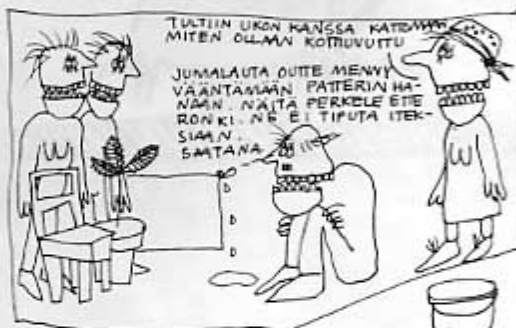 TULTIIN UKON KANSSA KATTOMAAN
MITEN OLLAAN KOTIUVUTTU
JUMALAUTA OUTTE MENNY
VÄÄNTÄMÄÄN PATTERIN HA-
NAAN. NÄITÄ PERKELE ETTE
RONKI. NE EI TIPUTA ITEK-
SIÄÄN.
SAATANA